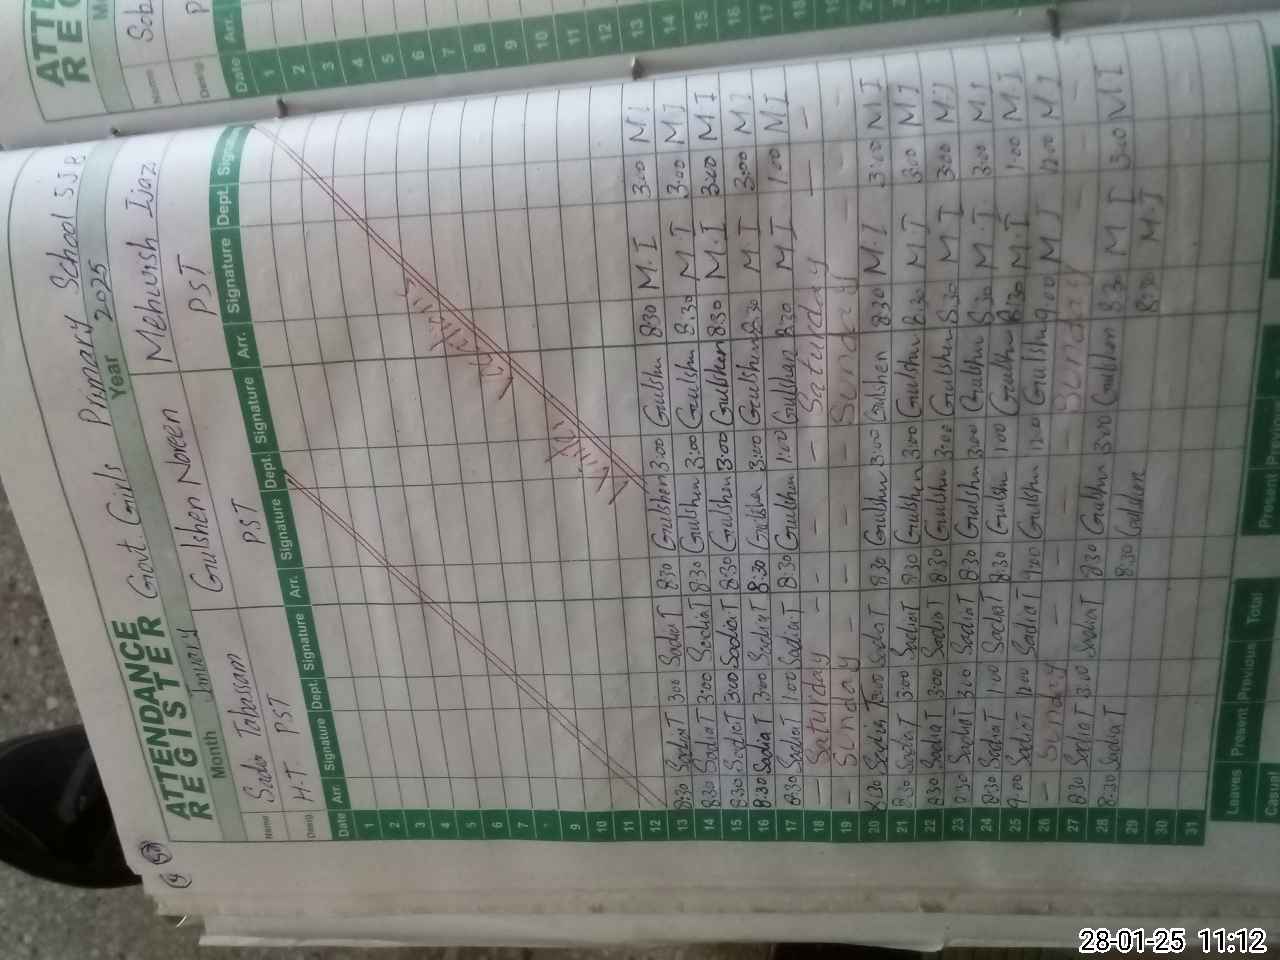 ATTENDANCE REGISTER
Govt. Girls Primary School SJB
Month January Year 2025
Name Sadia Tabassam Gulshen Noreen Mehwish Ijaz
Desig. H.T. PST PST PST
Date Arr. Signature Dept. Signature Arr. Signature Dept. Signature Arr. Signature Dept. Signature
1
2
3
4
5
6
7
9
10
11
12
13 8:30 Sadia T 3:00 Sadia T 8:30 Gulshen 3:00 Gulshen 8:30 M.I 3:00 M I
14 8:30 Sadia T 3:00 Sadia T 8:30 Gulshen 3:00 Gulshen 8:30 M.I 3:00 M I
15 8:30 Sadia T 3:00 Sadia T 8:30 Gulshen 3:00 Gulshen 8:30 M.I 3:00 M I
16 8:30 Sadia T 3:00 Sadia T 8:30 Gulshen 3:00 Gulshen 8:30 M.I 3:00 M I
17 8:30 Sadia T 1:00 Sadia T 8:30 Gulshen 1:00 Gulshen 8:30 M I 1:00 M I
18 — Saturday — — — — Saturday — —
19 — Sunday — — — — Sunday — —
20 8:30 Sadia T 3:00 Sadia T 8:30 Gulshen 3:00 Gulshen 8:30 M.I 3:00 M I
21 8:30 Sadia T 3:00 Sadia T 8:30 Gulshen 3:00 Gulshen 8:30 M.I 3:00 M I
22 8:30 Sadia T 3:00 Sadia T 8:30 Gulshen 3:00 Gulshen 8:30 M I 3:00 M I
23 8:30 Sadia T 3:00 Sadia T 8:30 Gulshen 3:00 Gulshen 8:30 M I 3:00 M I
24 8:30 Sadia T 1:00 Sadia T 8:30 Gulshen 1:00 Gulshen 8:30 M.I 1:00 M.I
25 9:00 Sadia T 12:00 Sadia T 9:00 Gulshen 12:00 Gulshen 9:00 M I 12:00 M I
26 — Sunday — — — — Sunday — —
27 8:30 Sadia T 3:00 Sadia T 8:30 Gulshen 3:00 Gulshen 8:30 M I 3:00 M I
28 8:30 Sadia T 8:30 Gulshen 8:30 M.I
29
30
31
Leaves Present Previous Total
Casual
Present
ATTE
RE
Name Sob
Desig. P
Date Arr.
1
2
3
4
5
6
7
8
9
10
11
12
13
14
15
16
17
18
19
20
21
28-01-25 11:12